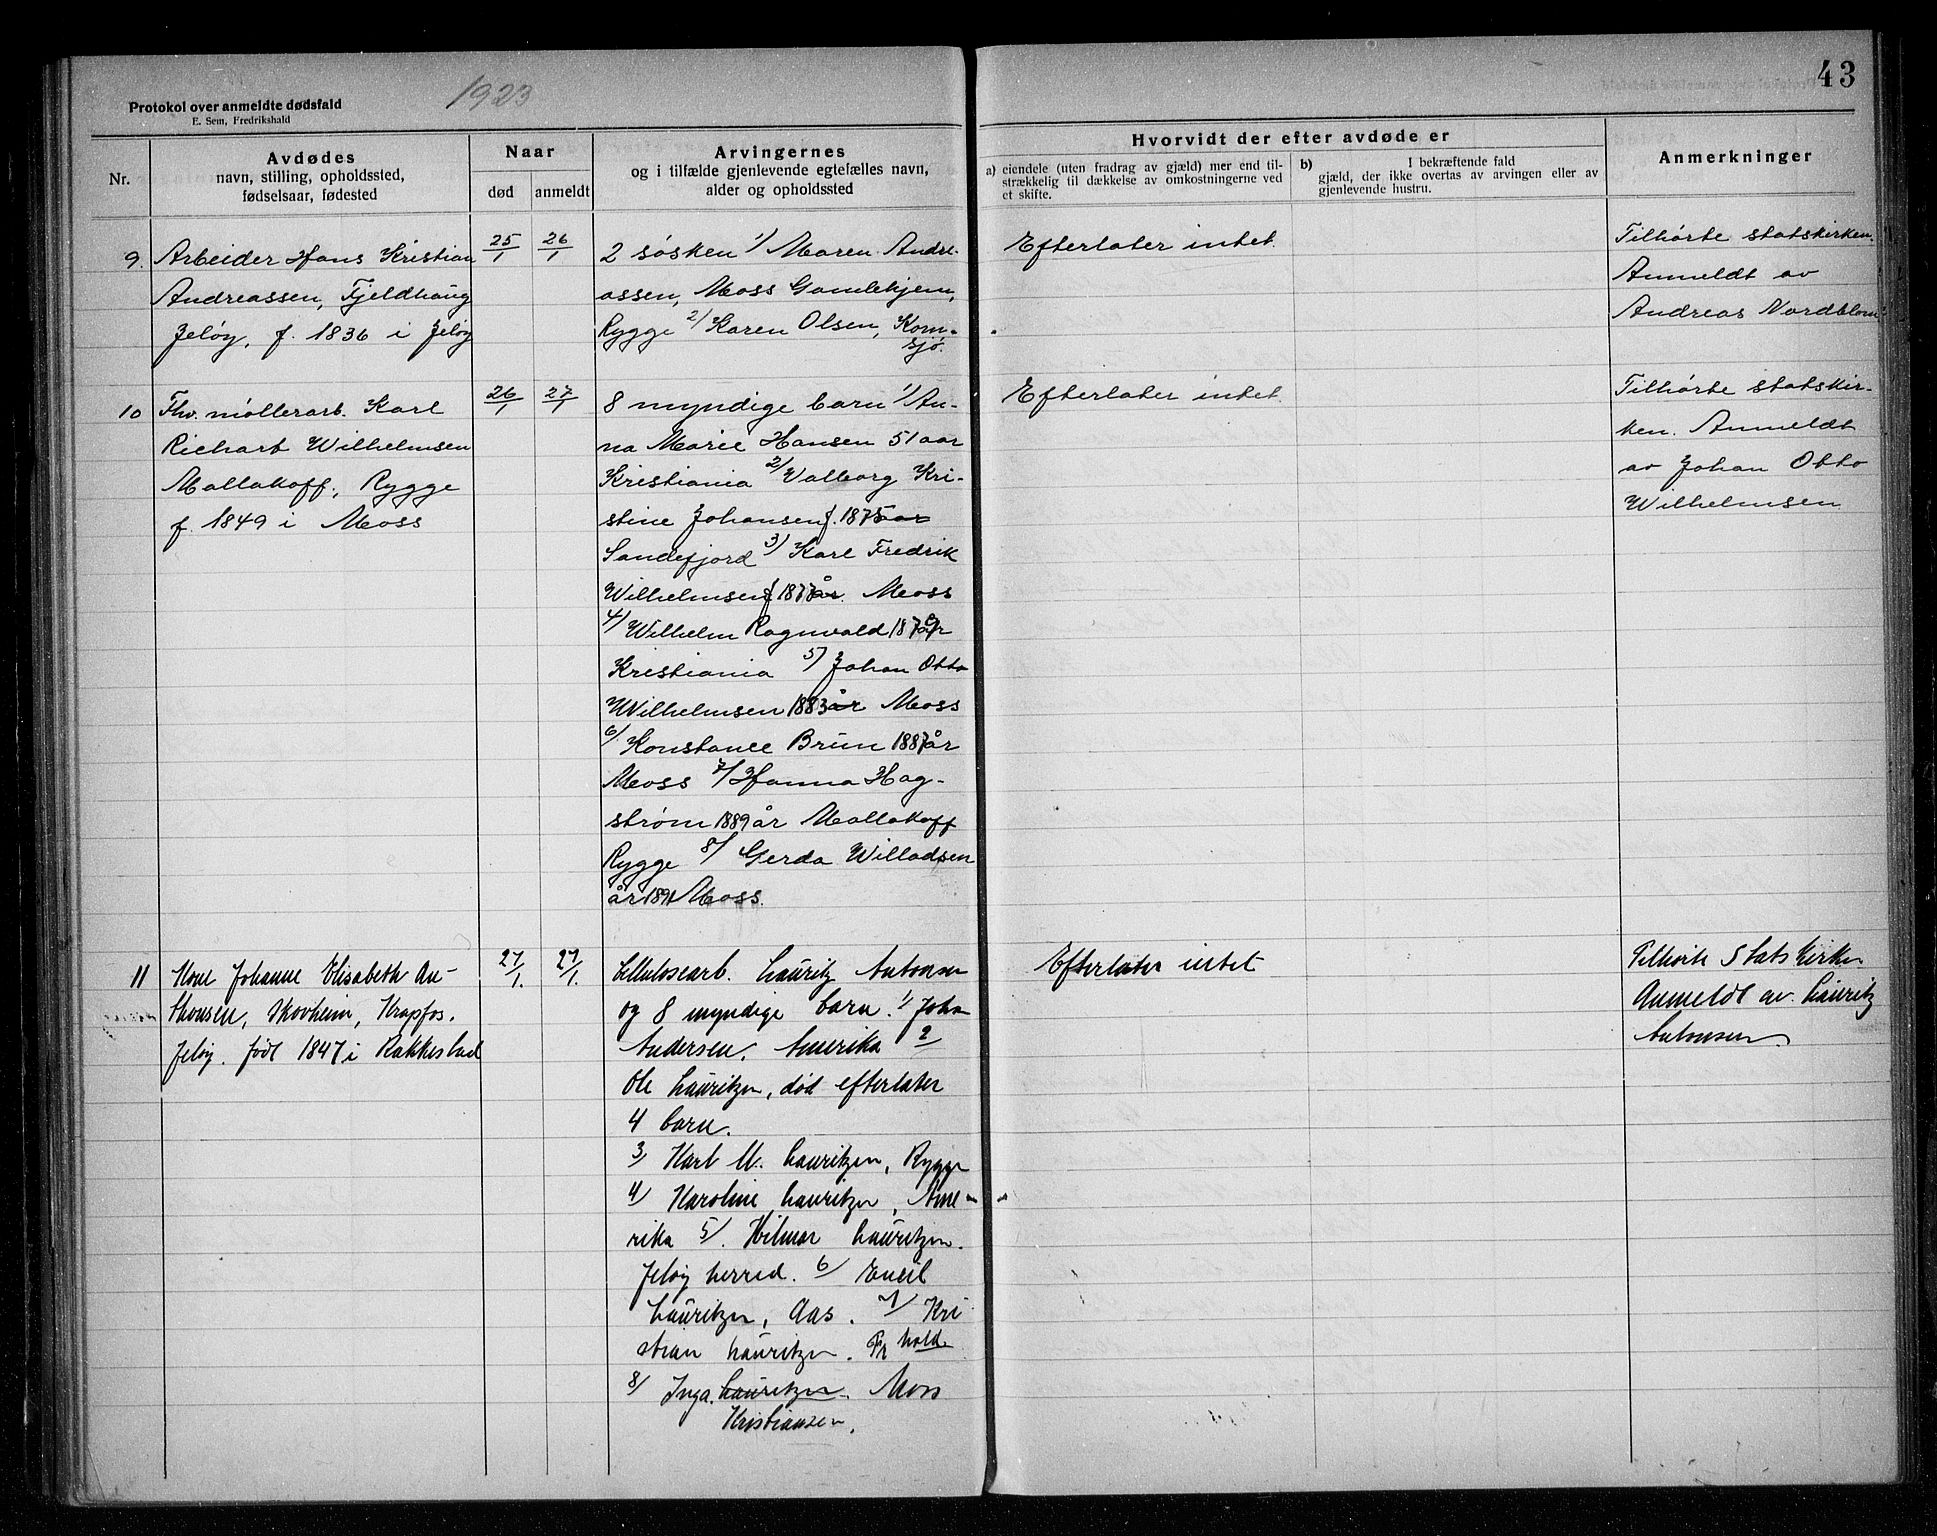 43
1923
Protokol over anmeldte dødsfald
E. Sem, Fredrikshald
Nr.
Avdødes
navn, stilling, opholdssted,
fødselsaar, fødested
Naar
død
anmeldt
Arvingernes
og i tilfælde gjenlevende egtefælles navn,
alder og opholdssted
Hvorvidt der efter avdøde er
a) eiendele (uten fradrag av gjæld) mer end til-
strækkelig til dækkelse av omkostningerne ved
et skifte.
b) I bekræftende fald
gjæld, der ikke overtas av arvingen eller av
gjenlevende hustru.
Anmerkninger
9. Arbeider Hans Kristian
Andreassen, Fjeldhaug
Jeløy, f. 1836 i Jeløy
25/1
26/1
2 søsken 1/ Maren Andre-
assen, Moss Gamlehjem,
Rygge 2/ Karen Olsen, Korn-
sjø.
Efterlater intet.
Tilhørte statskirken.
Anmeldt av
Andreas Nordblom
10 Fhv. møllerarb. Karl
Richart Wilhelmsen
Mallakoff, Rygge
f. 1849 i Moss
26/1
27/1
8 myndige barn 1/ An-
na Marie Hansen 51 aar
Kristiania 2/ Valborg Kri-
stine Johansen f. 1875 aar
Sandefjord 3/ Karl Fredrik
Wilhelmsen f 1877 år. Moss
4/ Wilhelm Ragnvald 1879 år
Kristiania 5/ Johan Otto
Wilhelmsen 1883 år Moss
6/ Konstance Brun 1887 år
Moss 7/ Hanna Hag-
strøm 1889 år Mallakoff
Rygge 8/ Gerda Willadsen
år 1891 Moss.
Efterlater intet.
Tilhørte statskir-
ken. Anmeldt
av Johan Otto
Wilhelmsen
11 Kone Johanne Elisabeth An-
thonsen, Skovheim, Krapfos.
Jeløy. født 1847 i Rakkestad
27/1.
29/1.
Cellulosearb. Lauritz Antonsen
og 8 myndige barn. 1/ Joha
Andersen, Amerika 2
Ole Lauritzen, død efterlater
4 barn.
3/ Karl M. Lauritzen, Rygge
4/ Karoline Lauritzen, Ame-
rika 5/. Hilmar Lauritzen.
Jeløy herred. 6/ Emil
Lauritzen, Aas. 7/ Kri
stian Lauritzen. hold.
8/ Inga Lauritzen. Moss
Kristiansen.
Efterlater intet
Tilhørte Stats Kirken
Anmeldt av Lauritz
Antonsen.